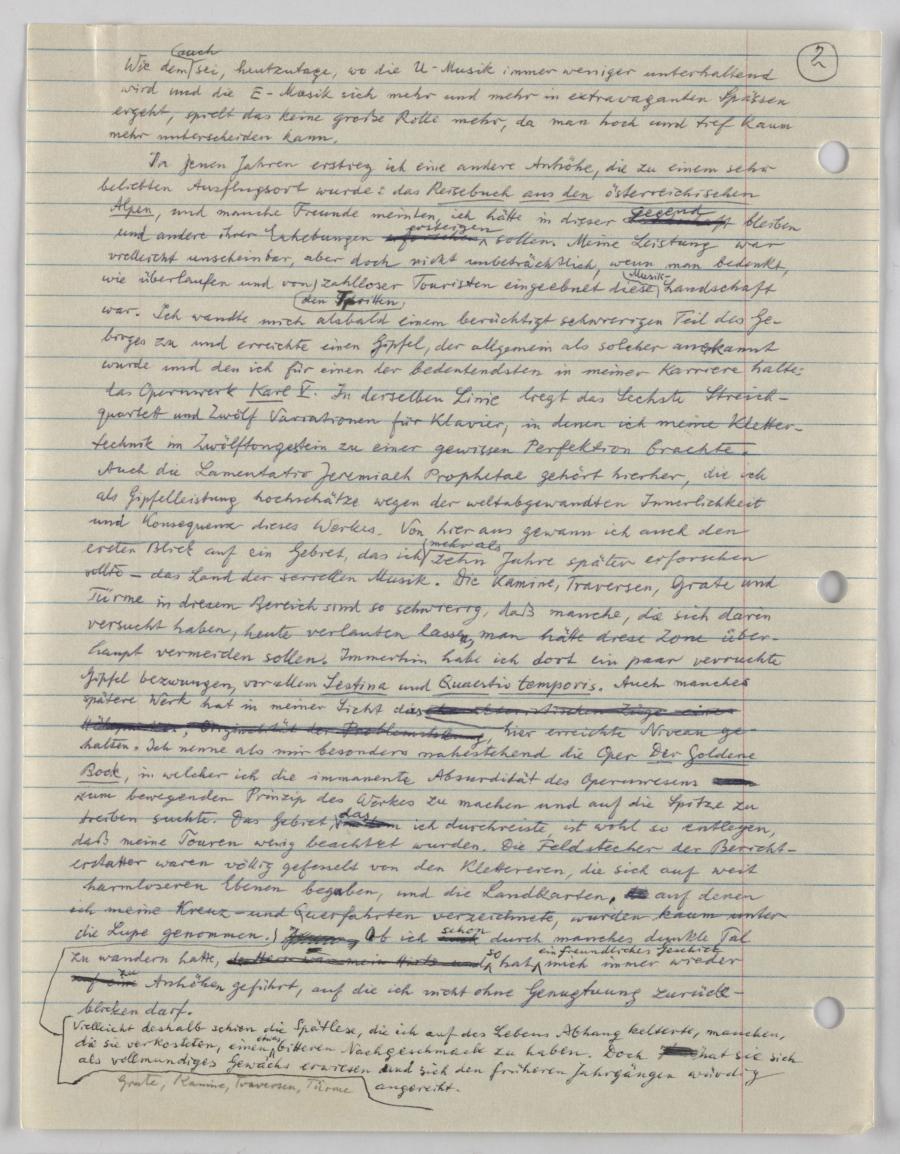 2
auch
Wie dem sei, heutzutage, wo die U-Musik immer weniger unterhaltend
wird und die E-Musik sich mehr und mehr in extravaganten Spässen
ergeht, spielt das keine große Rolle mehr, da man hoch und tief kaum
mehr unterscheiden kann.
In jenen Jahren erstieg ich eine andere Anhöhe, die zu einem sehr
beliebten Ausflugsort wurde: das Reisebuch aus den österreichischen
Alpen, und manche Freunde meinten, ich hätte in dieser gegend bleiben
und andere ihrer Erhebungen ersteigen sollen. Meine Leistung war
vielleicht unscheinbar, aber doch nicht unbeträchtlich, wenn man bedenkt,
wie überlaufen und von zahlloser Touristen eingeebnet diese Musik-Landschaft
den Tritten
war. Ich wandte mich alsbald einem berüchtigt schwierigen Teil des Ge-
birges zu und erreichte einen Gipfel, der allgemein als solcher anerkannt
wurde und den ich für einen der bedeutendsten in meiner Karriere halte:
das Opernwerk Karl V. In derselben Linie liegt das Sechste Streich-
quartett und Zwölf Variationen für Klavier, in denen ich meine Kletter-
technik im Zwölftongestein zu einer gewissen Perfektion brachte.
Auch die Lamentatio Jeremiaeh Prophetae gehört hierher, die ich
als Gipfelleistung hochschätze wegen der weltabgewandten Innerlichkeit
und Konsequenz dieses Werkes. Von hier aus gewann ich auch den
ersten Blick auf ein Gebiet, das ich mehr als zehn Jahre später erforschen
sollte – das Land der seriellen Musik. Die Kamine, Traversen, Grate und
Türme in diesem Bereich sind so schwierig, daß manche, die sich darin
versucht haben, heute verlauten lassen, man hätte diese Zone über-
haupt vermeiden sollen. Immerhin habe ich dort ein paar verruchte
Gipfel bezwungen, vor allem Sestina und Quaestio temporis. Auch manches
spätere Werk hat in meiner Sicht das
hier erreichte Niveau ge-
halten. Ich nenne als mir besonders nahestehend die Oper Der Goldene
Bock, in welcher ich die immanente Absurdität des Opernwesens
zum bewegenden Prinzip des Werkes zu machen und auf die Spitze zu
treiben suchte. Das Gebiet, das ich durchreiste, ist wohl so entlegen,
daß meine Touren wenig beachtet wurden. Die Feldstecher der Bericht-
erstatter waren völlig gefesselt von den Klettereien, die sich auf weit
harmloseren Ebenen begaben, und die Landkarten, auf denen
ich meine Kreuz- und Querfahrten verzeichnete, wurden kaum unter
die Lupe genommen.) Ob ich schon durch manches dunkle Tal
zu wandern hatte, so hat ein freundliches Geschick mich immer wieder
zu Anhöhen geführt, auf die ich nicht ohne Genugtuung zurück-
blicken darf.
Vielleicht deshalb schien die Spätlese, die ich auf des Lebens Abhang kelterte, manchen,
die sie verkosteten, einen etwas bitteren Nachgeschmack zu haben. Doch hat sie sich
als vollmundiges Gewächs erwiesen und sich den früheren Jahrgängen würdig
angereiht.
Grate, Kamine, Traversen, Türme